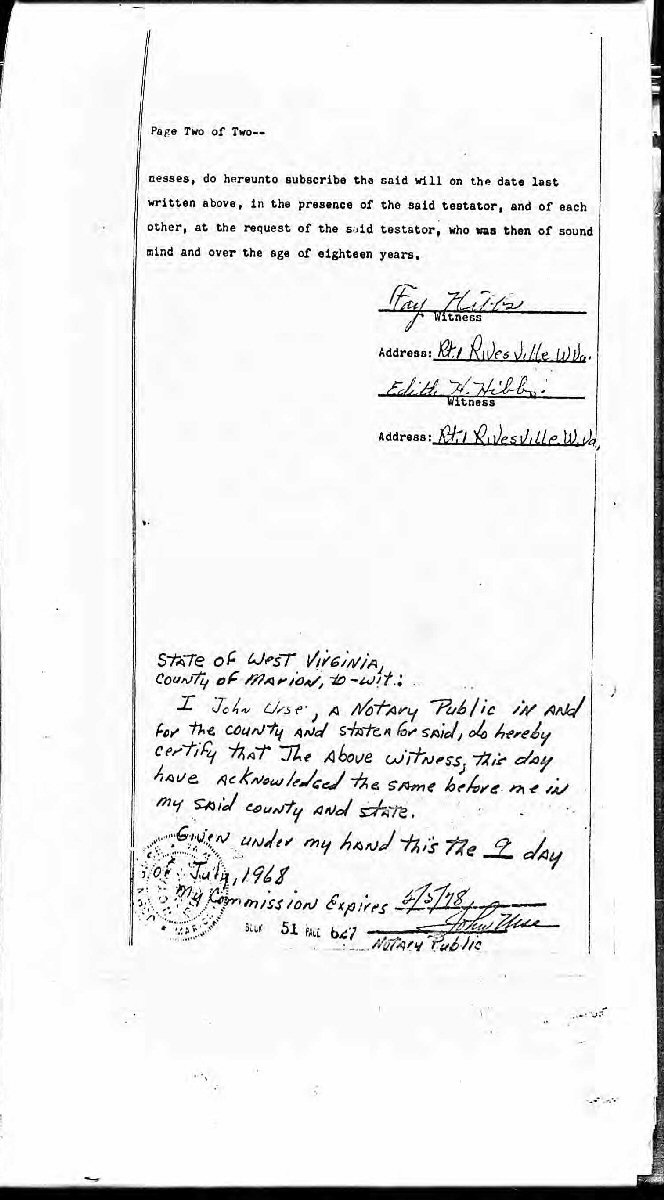 Page Two of Two--
nesses, do hereunto subscribe the said will on the date last
written above, in the presence of the said testator, and of each
other, at the request of the said testator, who was then of sound
mind and over the age of eighteen years.
Fay Hibbs
Witness
Address: Rt.1 Rivesville W.Va.
Edith H. Hibbs
Witness
Address: Rt.1 Rivesville W.Va,
State of West Virginia,
County of Marion, to-wit:
I John Urse, A Notary Public in and
for the county and state a for said, do hereby
certify that The Above witness, this day
have acknowledged the same before me in
my said county and state.
Given under my hand this the 9 day
of July, 1968
My Commission Expires 5/5/78
John Urse
BOOK 51 PAGE 627
Notary Public